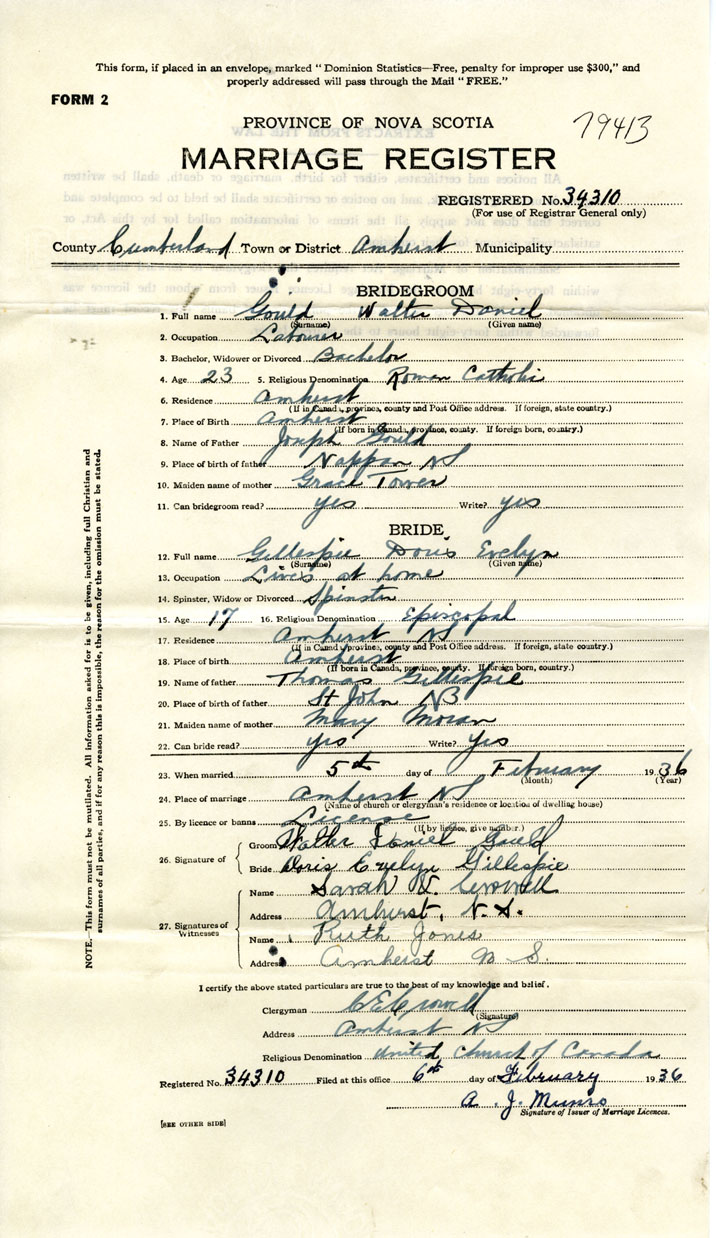 This form, if placed in an envelope, marked "Dominion Statistics—Free, penalty for improper use $300," and
properly addressed will pass through the Mail "FREE."
FORM 2
PROVINCE OF NOVA SCOTIA
79413
MARRIAGE REGISTER
REGISTERED No. 34310
(For use of Registrar General only)
County Cumberland Town or District Amherst Municipality
BRIDEGROOM
1. Full name Gould Walter Daniel
(Surname) (Given name)
2. Occupation Labourer
3. Bachelor, Widower or Divorced Bachelor
4. Age 23 5. Religious Denomination Roman Catholic
6. Residence Amherst
(If in Canada, province, county and Post Office address. If foreign, state country.)
7. Place of Birth Amherst
(If born in Canada, province, county. If foreign born, country.)
8. Name of Father Joseph Gould
9. Place of birth of father Nappan NS
10. Maiden name of mother Grace Tower
11. Can bridegroom read? yes Write? yes
BRIDE
12. Full name Gillespie Doris Evelyn
(Surname) (Given name)
13. Occupation Lives at home
14. Spinster, Widow or Divorced Spinster
15. Age 17 16. Religious Denomination Episcopal
17. Residence Amherst NS
(If in Canada, province, county and Post Office address. If foreign, state country.)
18. Place of birth Amherst
(If born in Canada, province, county. If foreign born, country.)
19. Name of father Thomas Gillespie
20. Place of birth of father St John NB
21. Maiden name of mother Mary Moran
22. Can bride read? yes Write? yes
23. When married 5th day of February 1936
(Month) (Year)
24. Place of marriage Amherst NS
(Name of church or clergyman's residence or location of dwelling house)
25. By licence or banns License
(If by licence, give number.)
26. Signature of
Groom Walter Daniel Gould
Bride Doris Evelyn Gillespie
27. Signatures of Witnesses
Name Sarah Crowell
Address Amherst, N.S.
Name Ruth Jones
Address Amherst N S.
I certify the above stated particulars are true to the best of my knowledge and belief.
Clergyman Crowell
(Signature)
Address Amherst NS
Religious Denomination United Church of Canada
Registered No. 34310 Filed at this office 6th day of February 1936
A. J. Munro
Signature of Issuer of Marriage Licences.
[SEE OTHER SIDE]
NOTE.—This form must not be mutilated. All information asked for is to be given, including full Christian and
surnames of all parties, and if for any reason this is impossible, the reason for the omission must be stated.